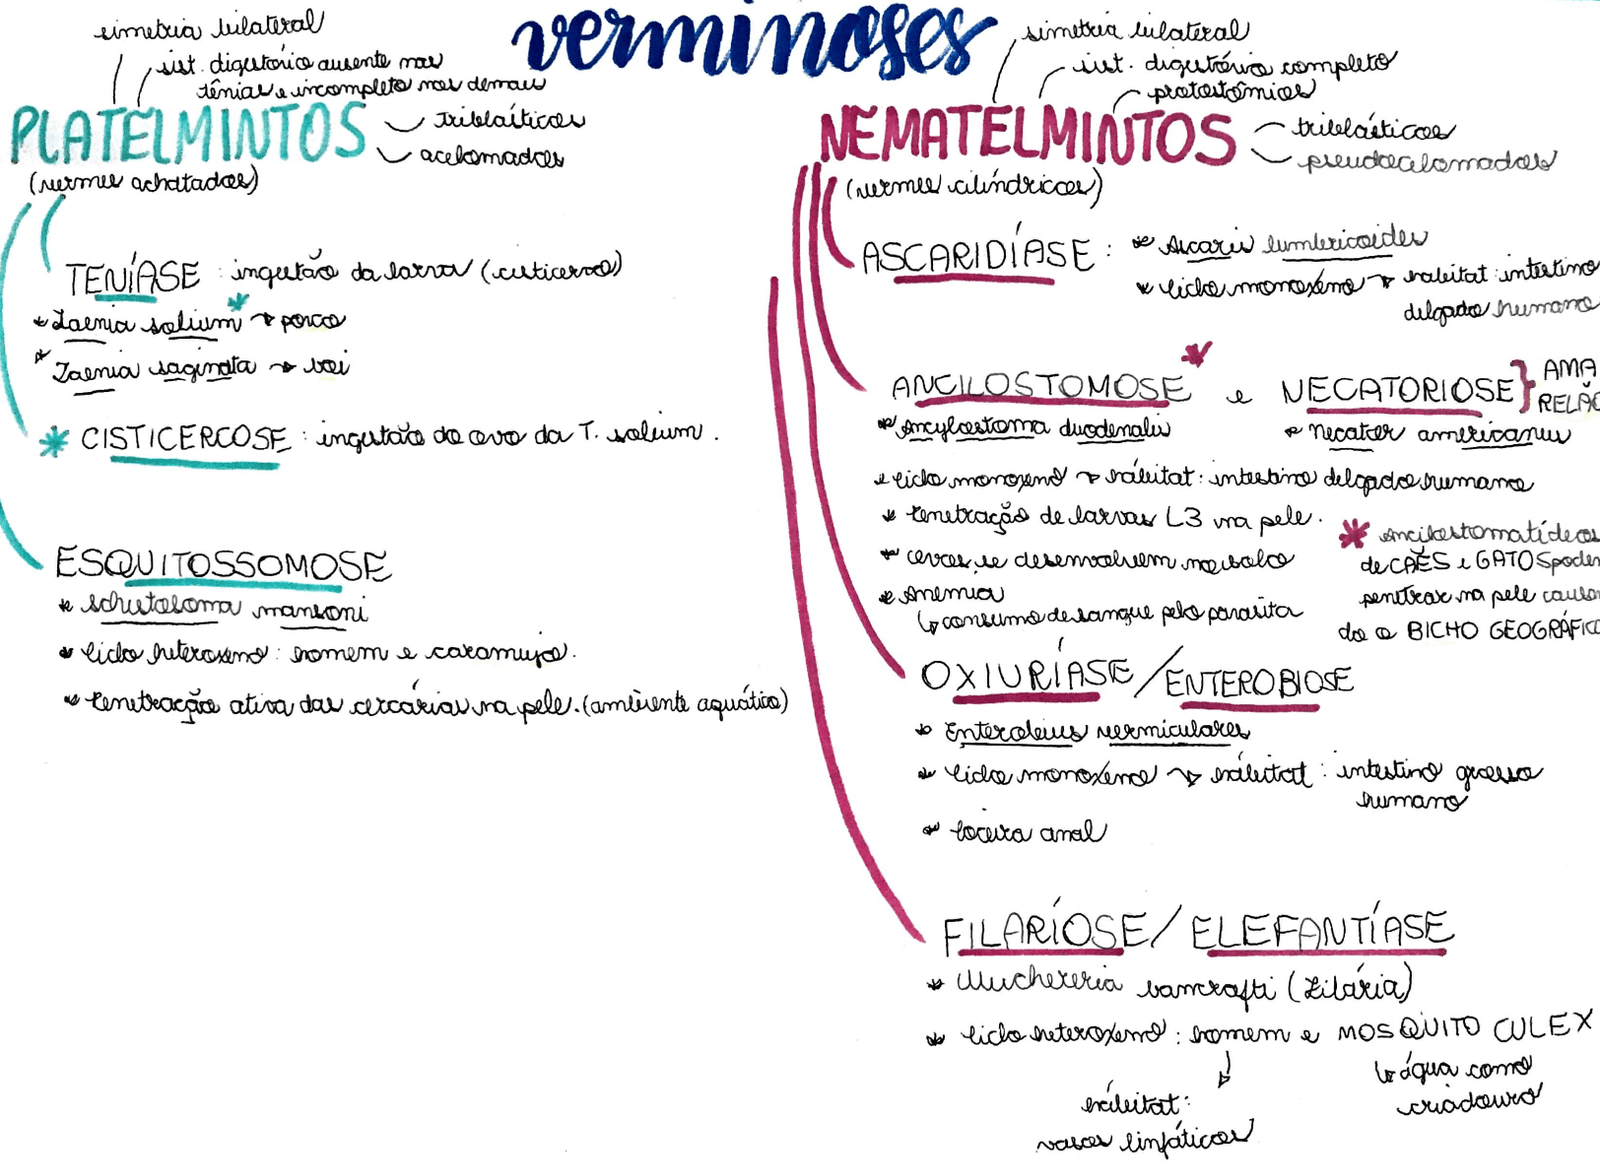 verminoses
simetria bilateral
sist. digestório ausente nas
tênias e incompleto nos demais
PLATELMINTOS
triblásticos
acelomados
(vermes achatados)
TENÍASE : ingestão da larva (cisticerco)
Taenia solium → porco
Taenia saginata → boi
CISTICERCOSE : ingestão do ovo da T. solium.
ESQUITOSSOMOSE
Schistosoma mansoni
ciclo heteroxeno : homem e caramujo.
Penetração ativa das cercárias na pele. (ambiente aquático)
simetria bilateral
sist. digestório completo
protostômios
NEMATELMINTOS
triblásticos
pseudocelomados
(vermes cilíndricos)
ASCARIDÍASE : * Ascaris lumbricoides
* ciclo monoxeno → hábitat : intestino
delgado humano
ANCILOSTOMOSE* e NECATORIOSE } AMA
RELÃO
* Ancylostoma duodenalis
* Necator americanus
* ciclo monoxeno → hábitat : intestino delgado humano
* Penetração de larvas L3 na pele.
* ovos se desenvolvem no solo
* Anemia
↳ consumo de sangue pelo parasita
* Ancilostomatídeos
de CÃES e GATOS podem
penetrar na pele causan
do o BICHO GEOGRÁFICO
OXIURÍASE / ENTEROBIOSE
* Enterobius vermiculares
* ciclo monoxeno → hábitat : intestino grosso
humano
* Coceira anal
FILARÍOSE / ELEFANTÍASE
* Wuchereria bancrofti (Filária)
* ciclo heteroxeno : homem e MOSQUITO CULEX
↳ água como
criadouro
hábitat :
vasos linfáticos